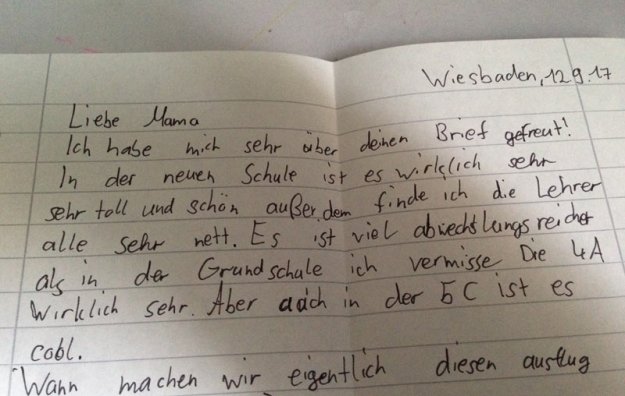 Wiesbaden, 12.9.17
Liebe Mama
Ich habe mich sehr über deinen Brief gefreut!
In der neuen Schule ist es wirklich sehr
sehr toll und schön außerdem finde ich die Lehrer
alle sehr nett. Es ist viel abwechslungsreicher
als in der Grundschule ich vermisse Die 4A
wirklich sehr. Aber auch in der 5C ist es
cobl.
Wann machen wir eigentlich diesen ausflug